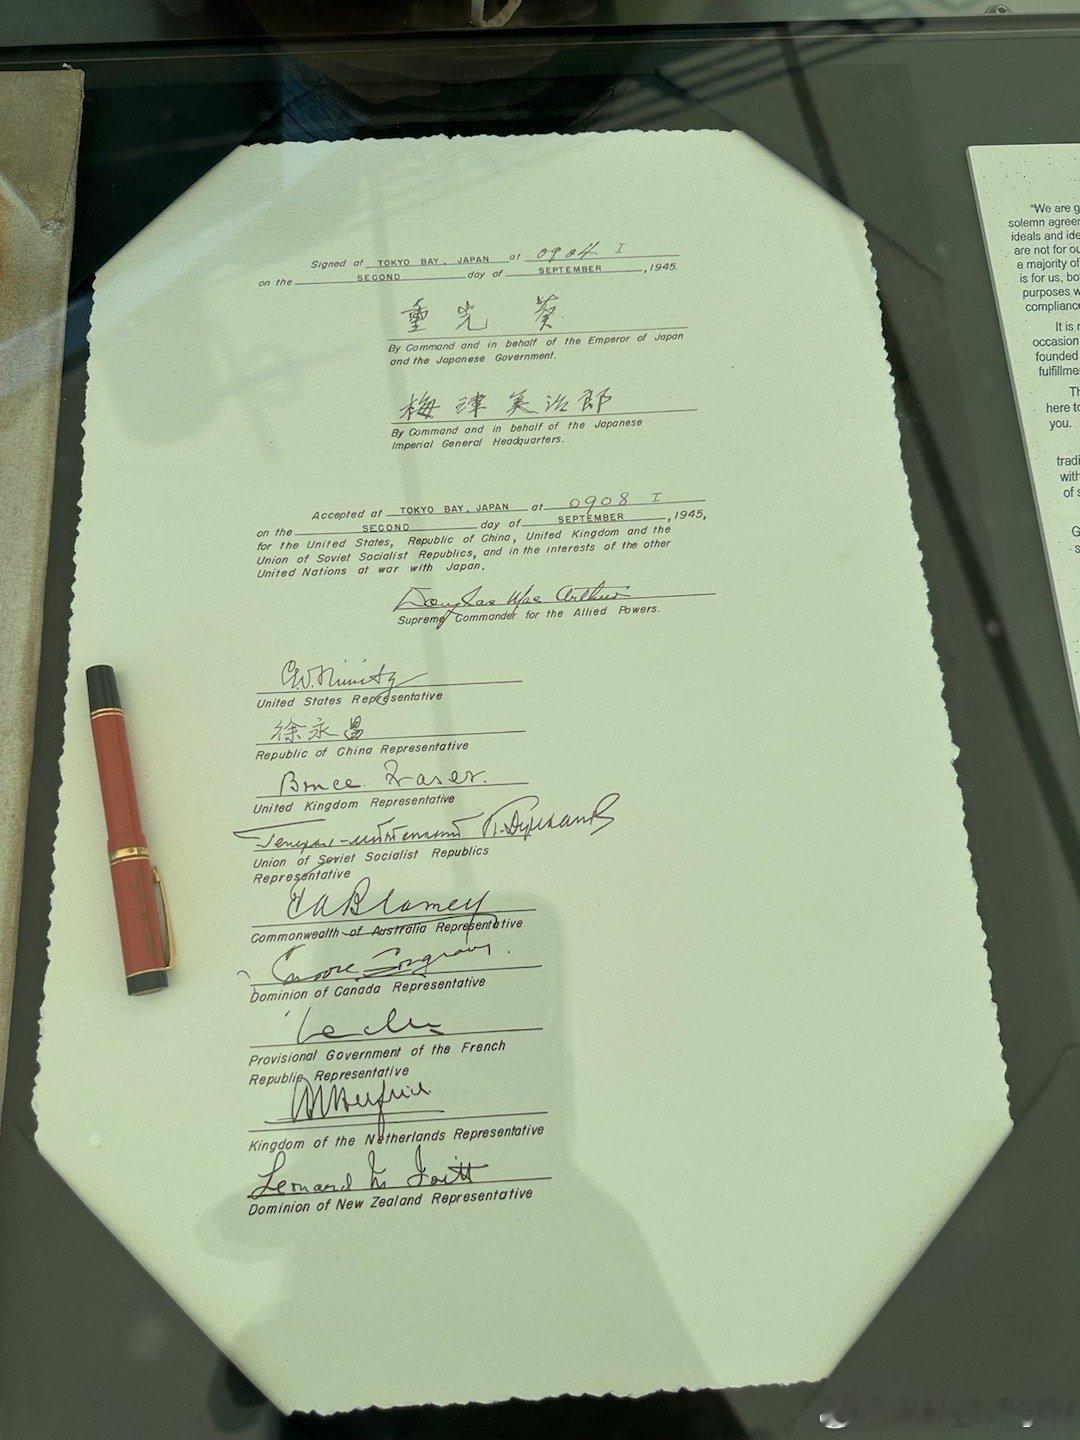 Signed at TOKYO BAY, JAPAN at 0904 I
on the SECOND day of SEPTEMBER, 1945.
重光 葵
By Command and in behalf of the Emperor of Japan
and the Japanese Government.
梅津美治郎
By Command and in behalf of the Japanese
Imperial General Headquarters.
Accepted at TOKYO BAY, JAPAN at 0908 I
on the SECOND day of SEPTEMBER, 1945,
for the United States, Republic of China, United Kingdom and the
Union of Soviet Socialist Republics, and in the interests of the other
United Nations at war with Japan.
Douglas MacArthur
Supreme Commander for the Allied Powers.
C.W. Nimitz
United States Representative
徐永昌
Republic of China Representative
Bruce Fraser.
United Kingdom Representative
Union of Soviet Socialist Republics
Representative
T A Blamey
Commonwealth of Australia Representative
Dominion of Canada Representative
Provisional Government of the French
Republic Representative
Kingdom of the Netherlands Representative
Leonard M Isitt
Dominion of New Zealand Representative
"We are g
solemn agree
ideals and ide
are not for ou
a majority of
is for us, bo
purposes w
compliance
It is
occasion
founded
fulfillme
Th
here to
you.
tradi
with
of s
G
s